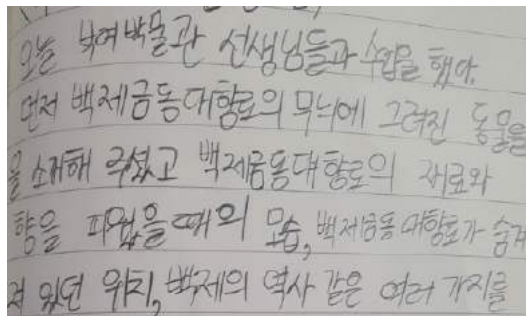 오늘 부여박물관 선생님들과 수업을 했어.
먼저 백제금동대향로의 무늬에 그려진 동물을
을 소개해 주셨고 백제금동대향로의 재료와
향을 피웠을때의 모습, 백제금동 대향로가 숨겨
져 있던 위치, 백제의 역사 같은 여러 가지를